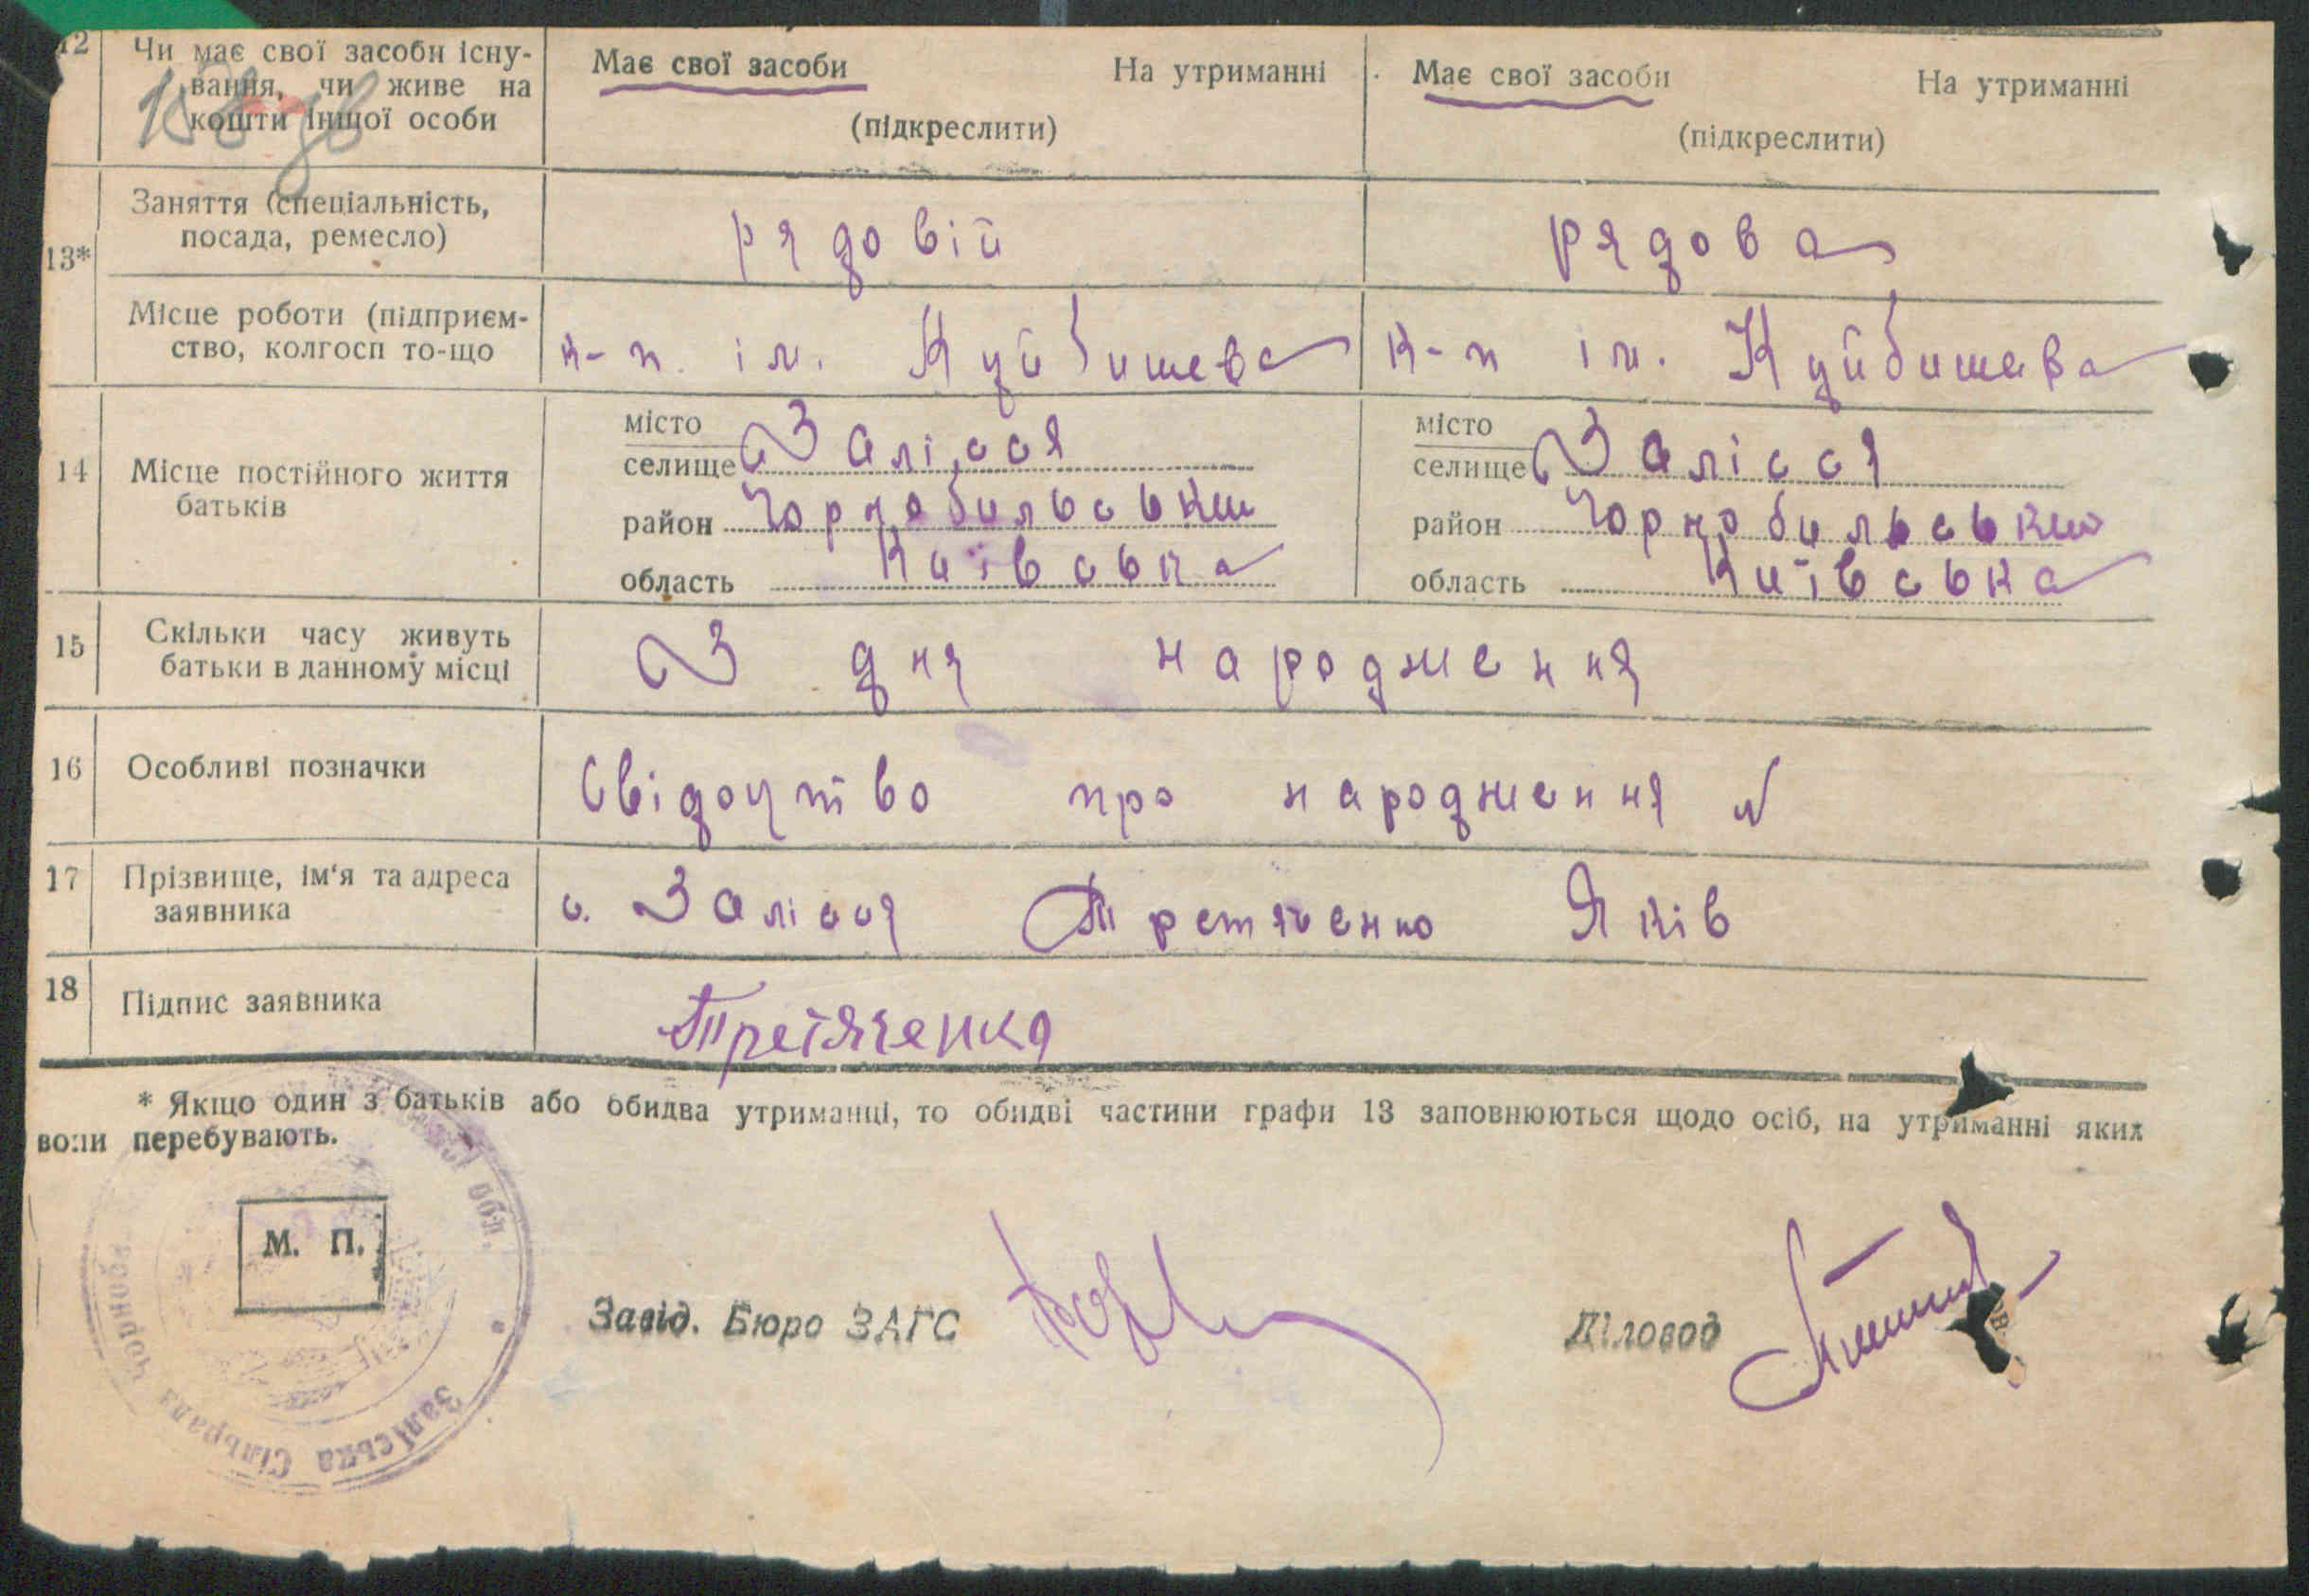 12 Чи має свої засоби існу- Має свої засоби На утриманні Має свої засоби На утриманні
вання, чи живе на
кошти іншої особи (підкреслити) (підкреслити)
13* Заняття (спеціальність, рядовій рядова
посада, ремесло)
Місце роботи (підприєм- к-п ім. Куйбишева к-п ім. Куйбишева
ство, колгосп то-що
14 Місце постійного життя
батьків
місто
селище Залісся
район Чорнобильськи
область Київська
місто
селище Залісся
район Чорнобильськи
область Київська
15 Скільки часу живуть З дня народження
батьки в данному місці
16 Особливі позначки Свідоцтво про народження №
17 Прізвище, ім'я та адреса с. Залісся Третяченко Яків
заявника
18 Підпис заявника Третяченко
* Якщо один з батьків або обидва утриманці, то обидві частини графи 13 заповнюються щодо осіб, на утриманні яких
вони перебувають.
М. П.
Завід. Бюро ЗАГС Діловод
обл.
Заліська Сільрада